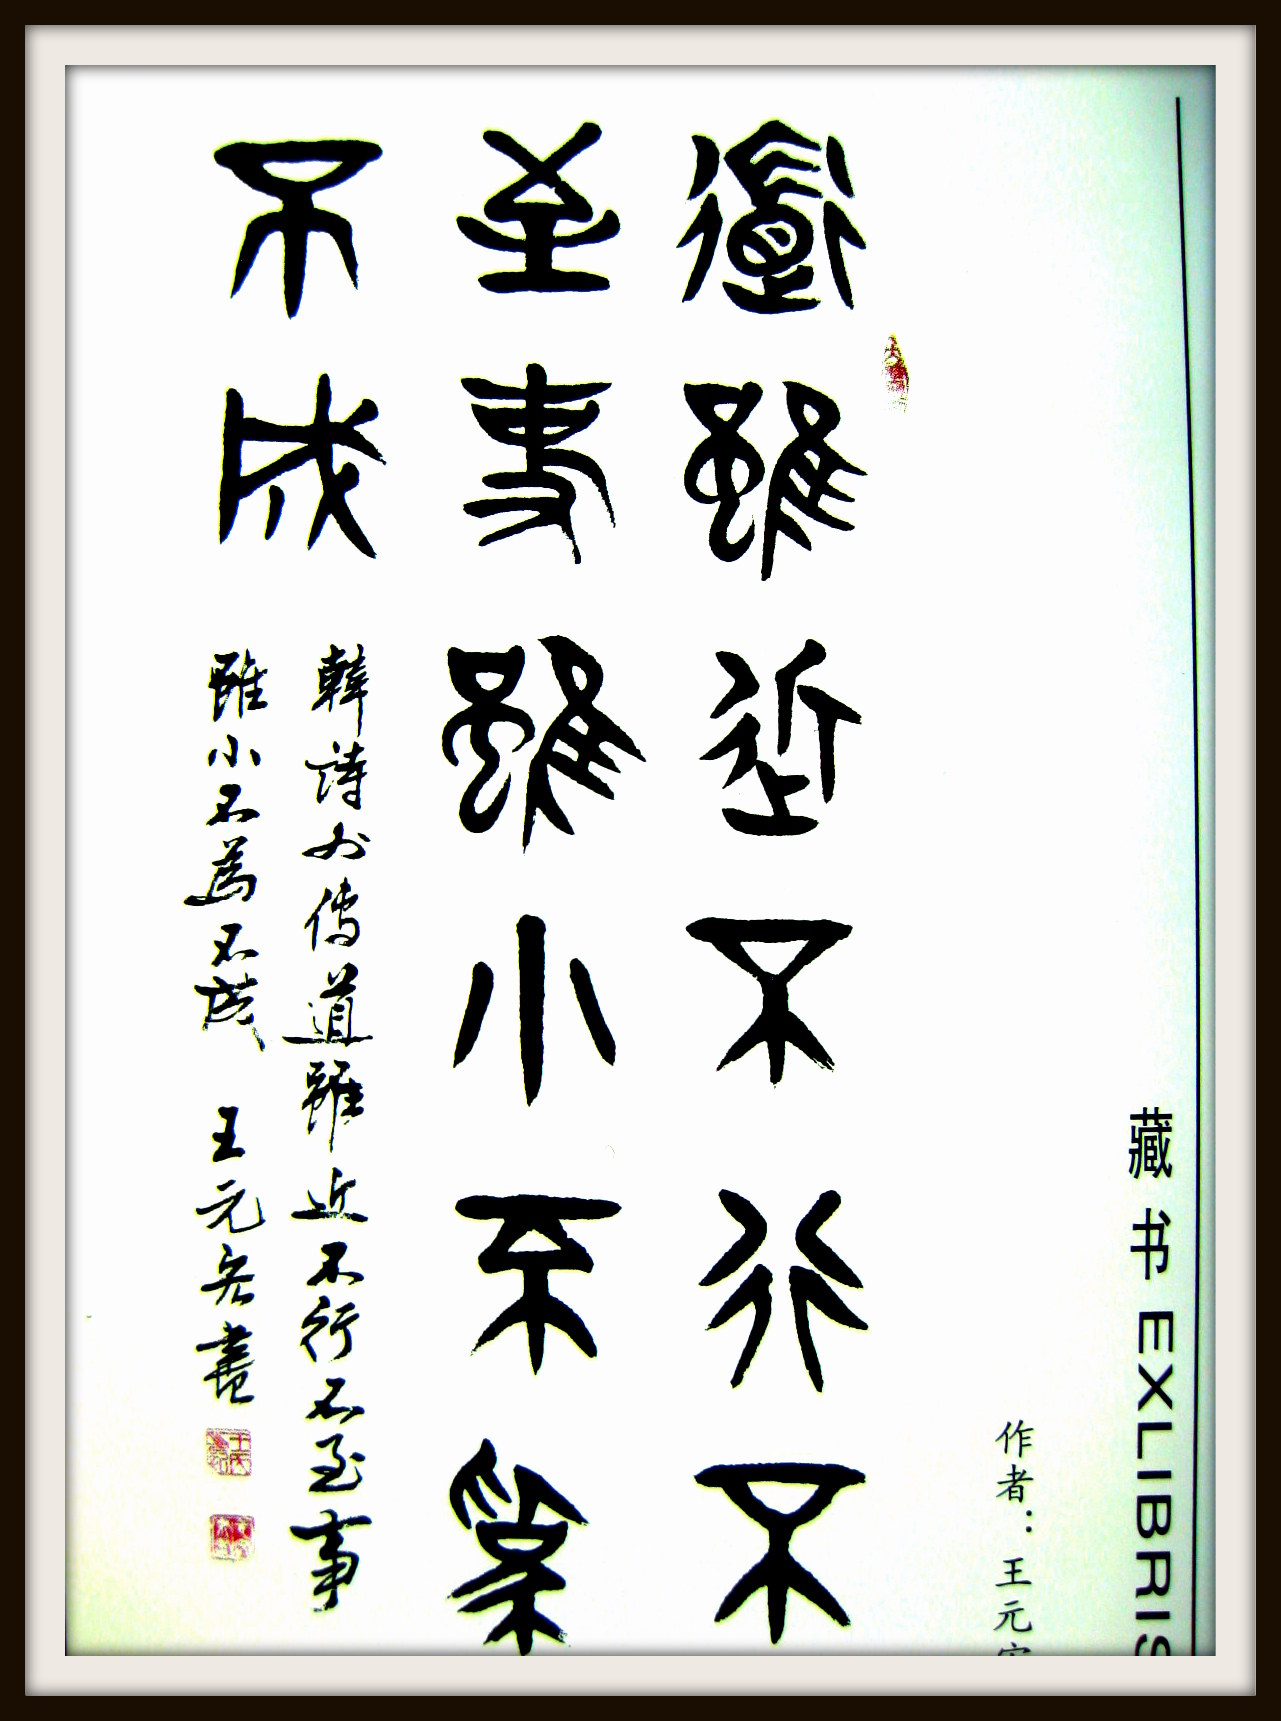 藏书 EXLIBRIS
作者：王元
道雖近不行不
至事雖小不為
不成
韓詩外傳道雖近不行不至事
雖小不為不成 王元書